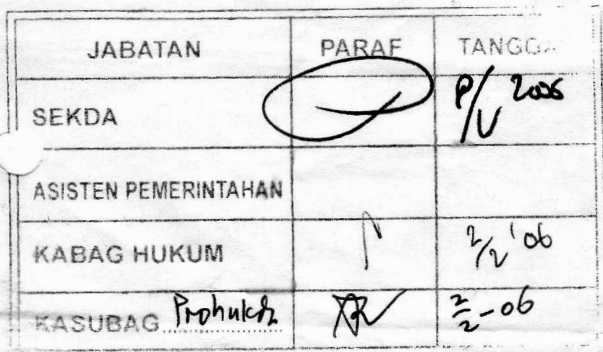 JABATAN PARAF TANGGA
SEKDA 2006
ASISTEN PEMERINTAHAN
KABAG HUKUM 2/2 '06
KASUBAG Prohukda 2/2-06